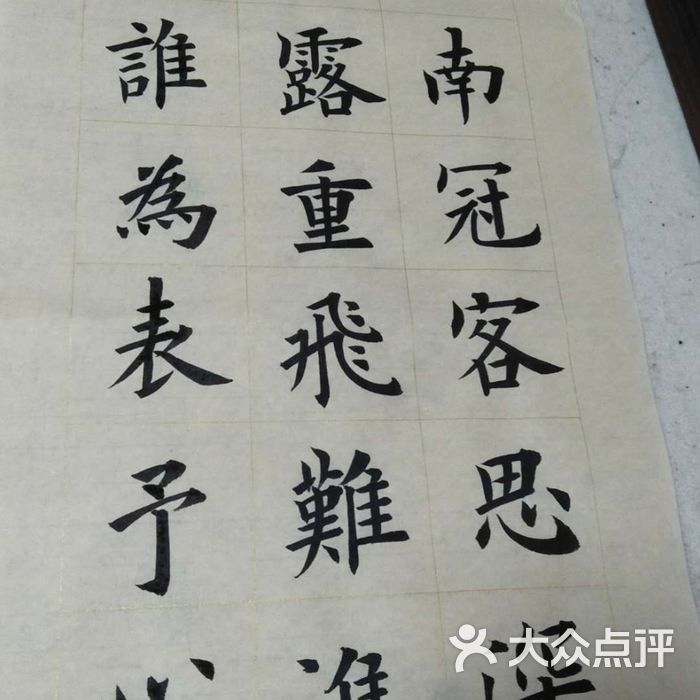 南冠客思深
露重飛難進
誰為表予心
大众点评